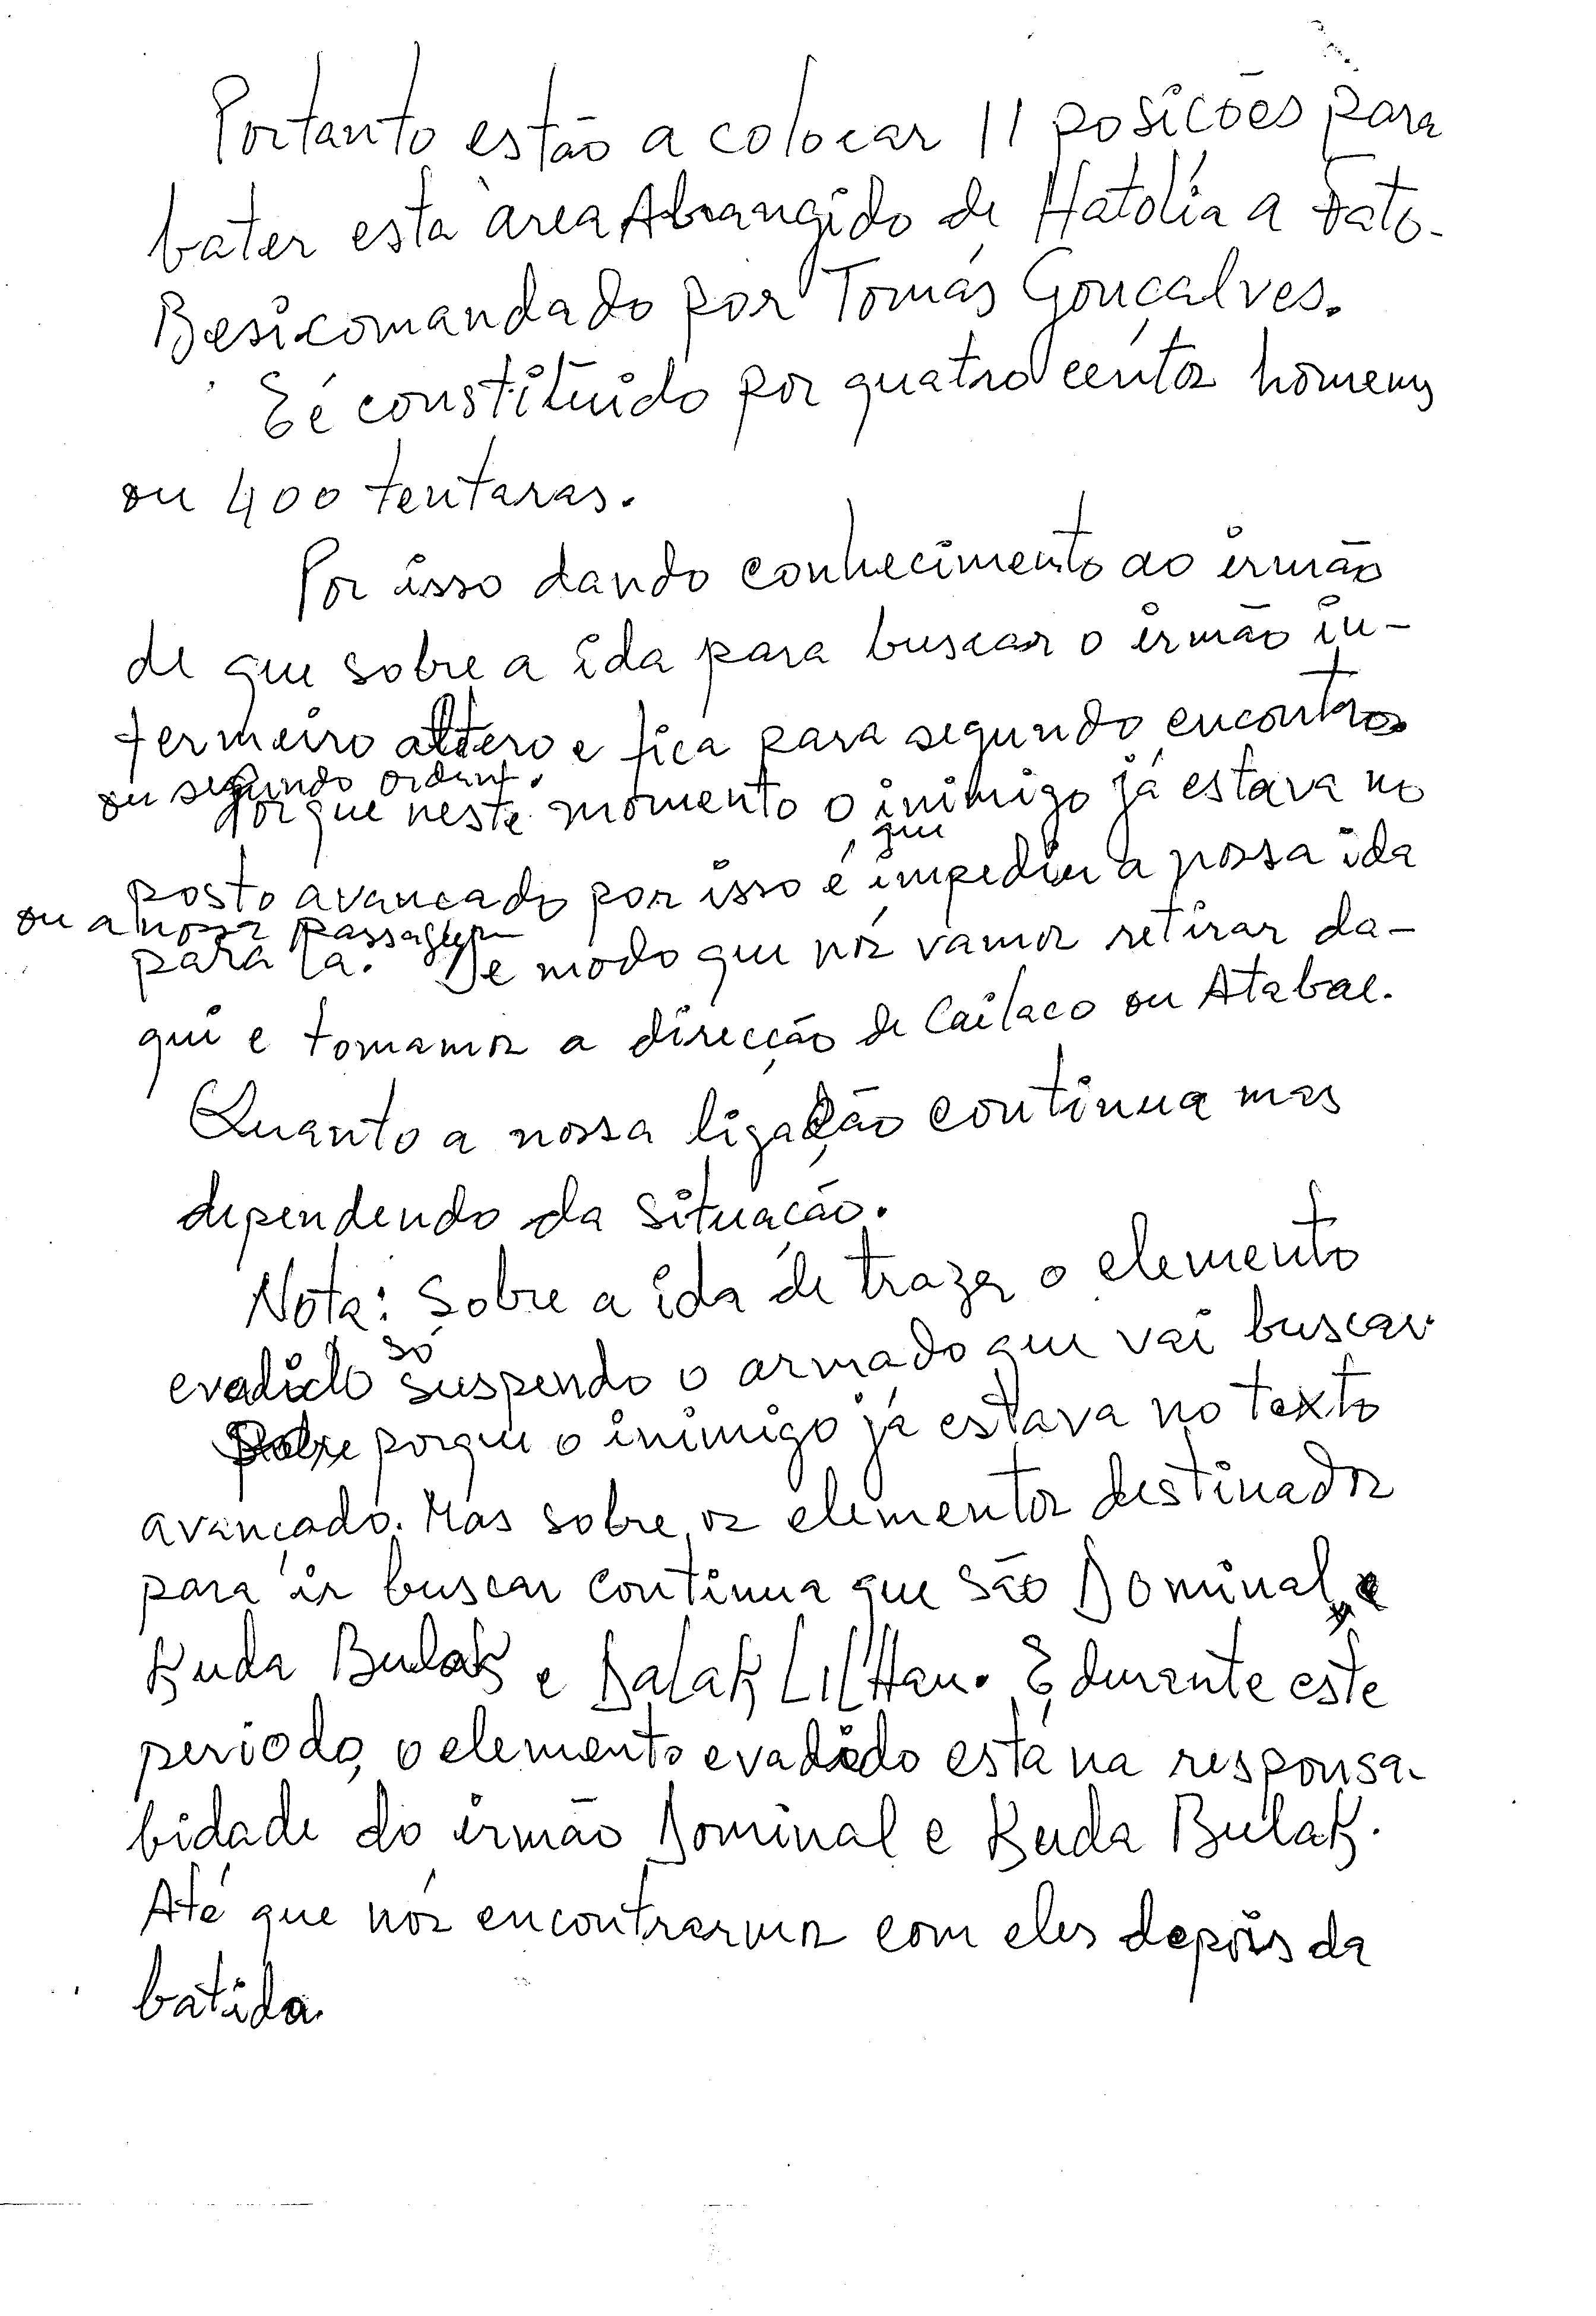 Portanto estão a colocar 11 posições para
bater esta àrea Abrangido de Hatolía a Fato-
Besi comandado por Tomás Gonçalves.
E é constituido por quatro centos homens
ou 400 tentaras.
Por isso dando conhecimento ao irmão
de que sobre a ida para buscar o irmão in-
fermeiro altero e fica para segundo encontro
ou segundo ordem.
Porque neste momento o inimigo já estava no
posto avançado por isso é que impediu a nossa ida
ou a nossa passagem
para lá. De modo que nós vamos retirar da-
qui e tomamos a direcção de Cailaco ou Atabae.
Quanto a nossa ligação continua mas
dependendo da situação.
Nota: Sobre a ida de trazer o elemento
evadido só suspendo o armado que vai buscar
porque o inimigo já estava no texto
avançado. Mas sobre os elementos destinados
para ir buscar continua que são Dominal e
Kuda Bulak e Dalak LilHau. E durante este
periodo, o elemento evadido está na responsa-
bidade do irmão Dominal e Kuda Bulak.
Até que nós encontrarmos com eles depois da
batida.